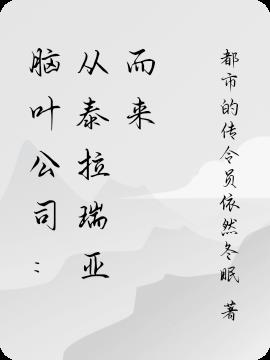 脑叶公司：
从泰拉瑞亚
而来
都市的传令员依然冬眠 著